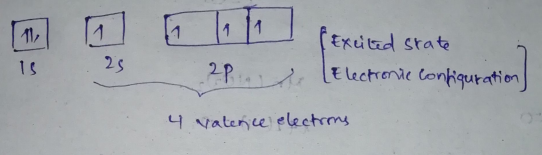 1L 1 1 1 1
[Excited state
1s 2s 2p Electronic Configuration]
4 valence electrons